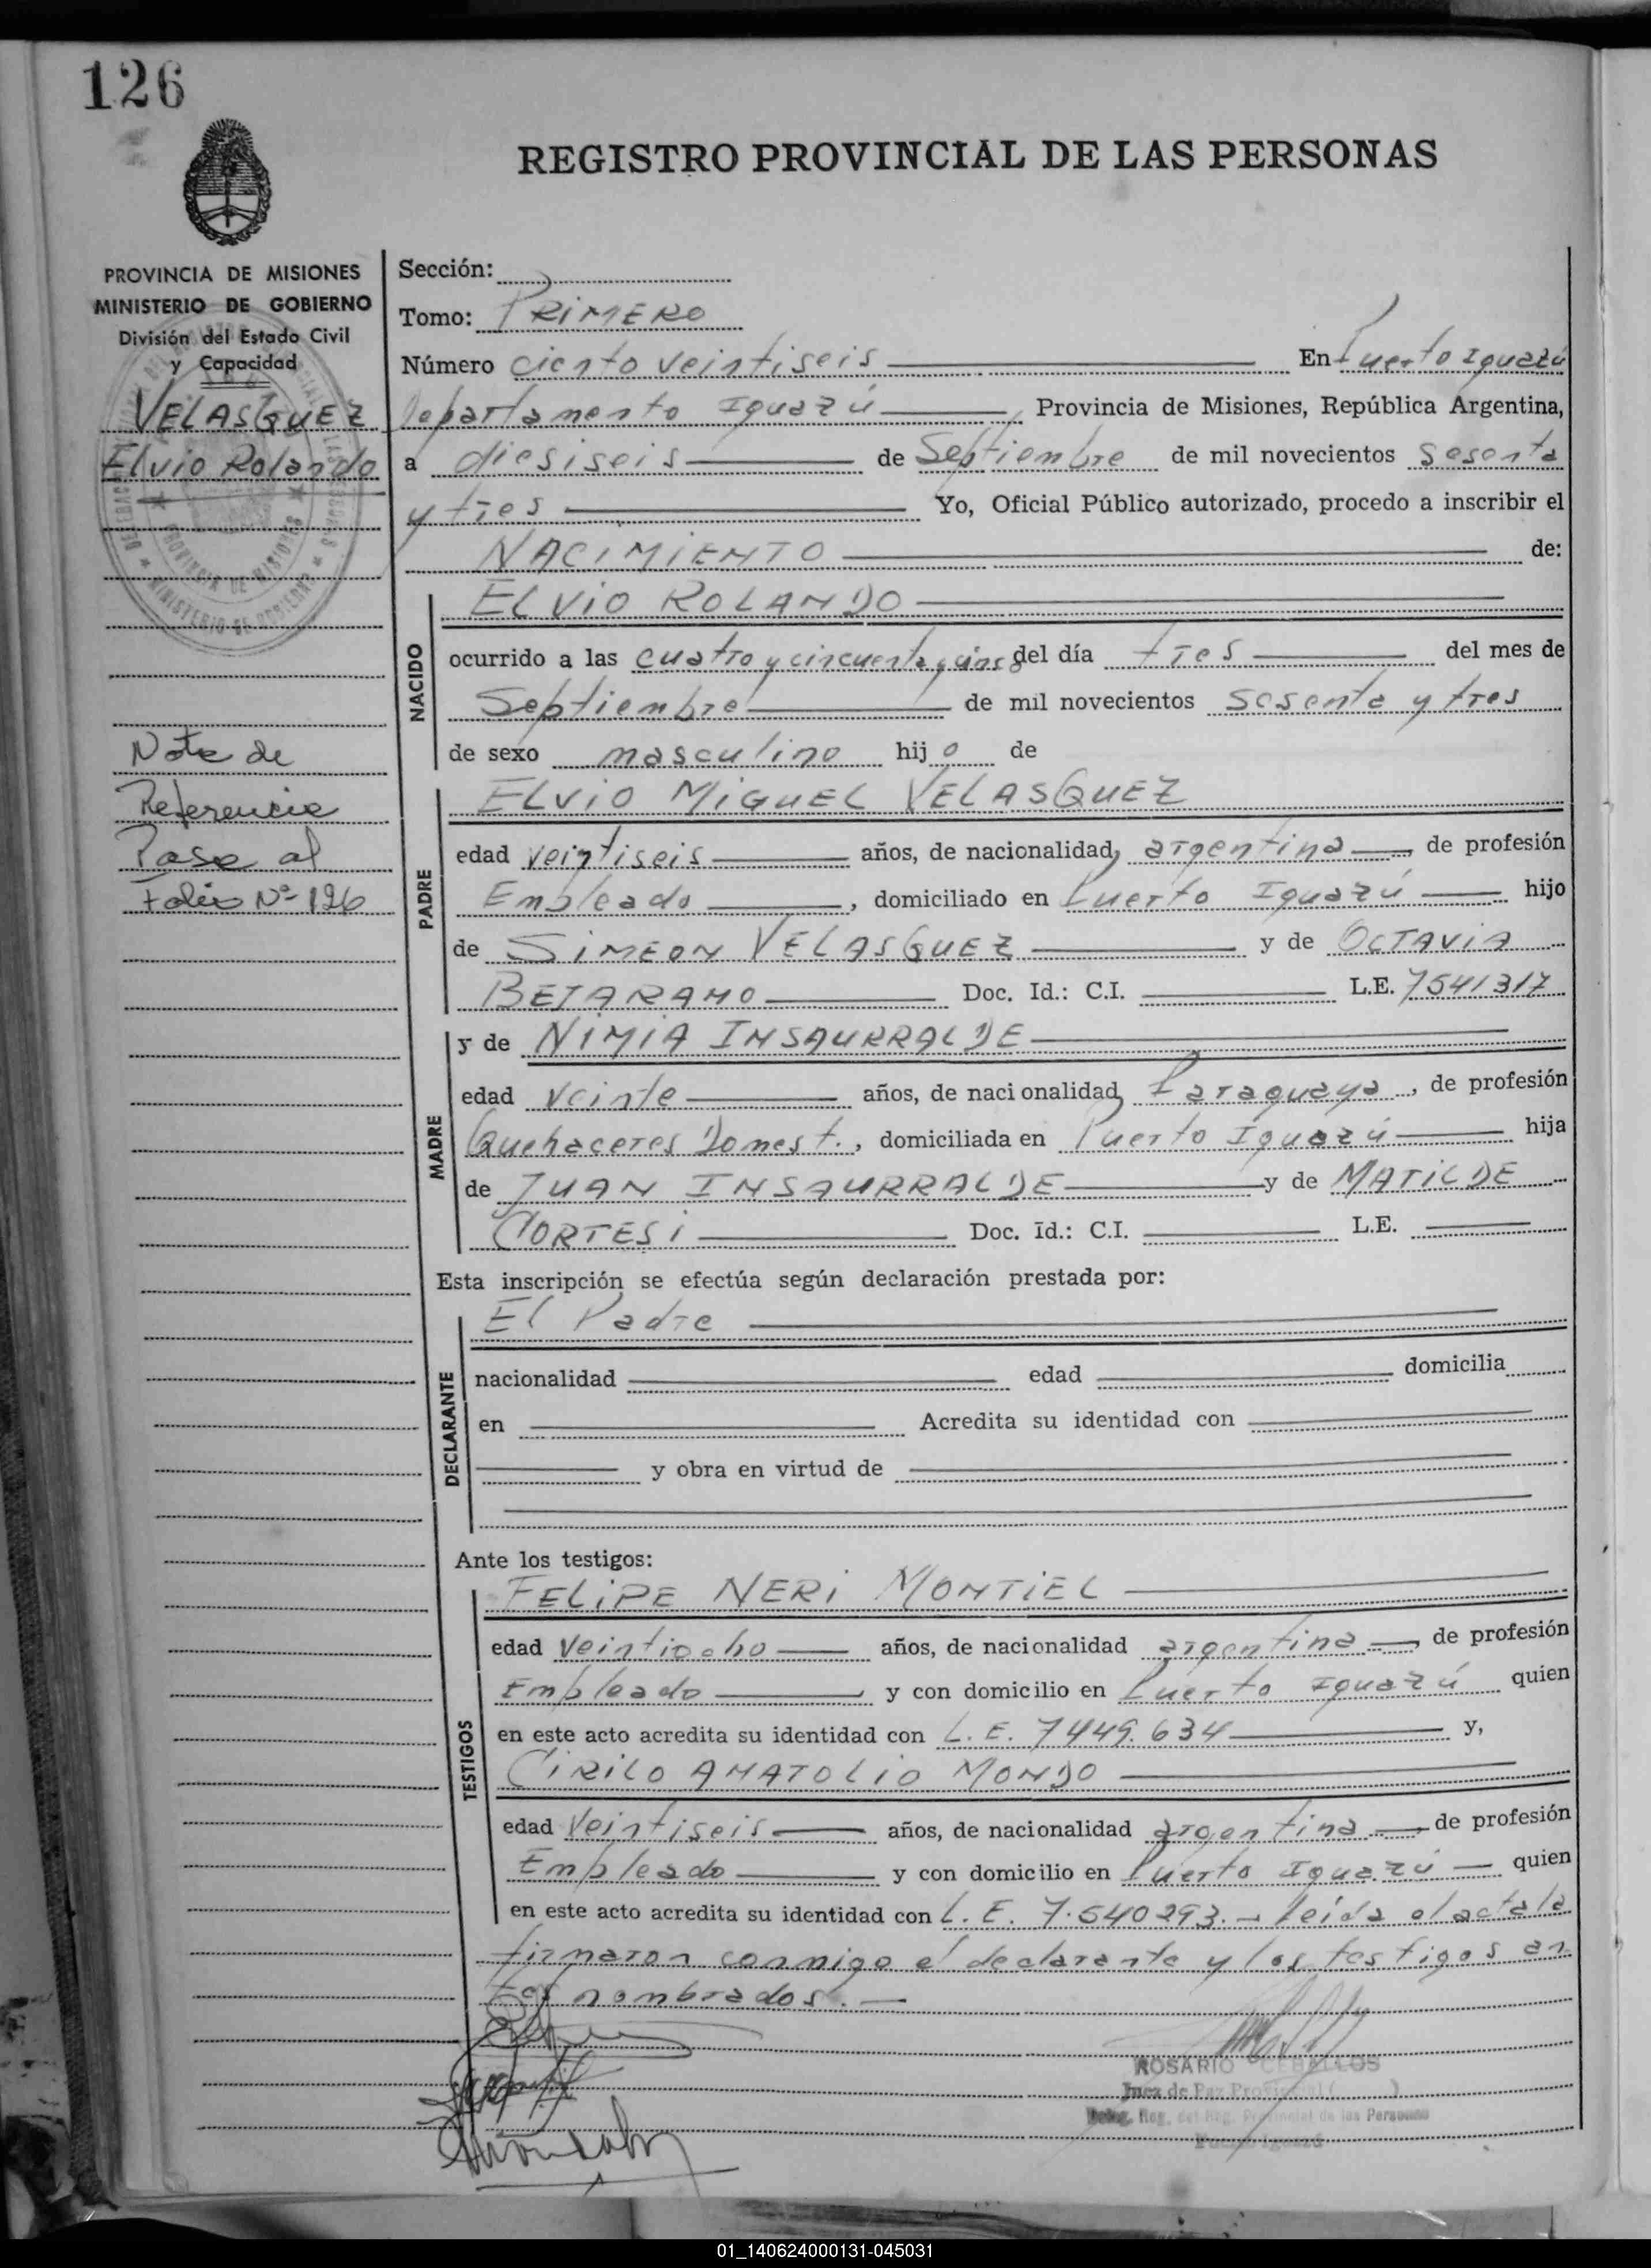 126
REGISTRO PROVINCIAL DE LAS PERSONAS
PROVINCIA DE MISIONES
MINISTERIO DE GOBIERNO
División del Estado Civil
y Capacidad
VELASQUEZ
Elvio Rolando
Nota de
Referencia
Pase al
Folio Nº 126
Sección:
Tomo: PRIMERO
Número ciento veintiseis En Puerto Iguazú
Departamento Iguazú, Provincia de Misiones, República Argentina,
a diesiseis de Septiembre de mil novecientos sesenta
y tres Yo, Oficial Público autorizado, procedo a inscribir el
NACIMIENTO de:
NACIDO
ELVIO ROLANDO
ocurrido a las cuatro y cincuenta y cinco del día tres del mes de
Septiembre de mil novecientos sesenta y tres
de sexo masculino hijo de
PADRE
ELVIO MIGUEL VELASQUEZ
edad veintiseis años, de nacionalidad, argentina, de profesión
Empleado, domiciliado en Puerto Iguazú hijo
de SIMEON VELASQUEZ y de OCTAVIA
BEJARANO Doc. Id.: C.I. L.E. 7541317
MADRE
y de NIMIA INSAURRALDE
edad veinte años, de nacionalidad, Paraguaya, de profesión
Quehaceres Domest., domiciliada en Puerto Iguazú hija
de JUAN INSAURRALDE y de MATILDE
CORTESI Doc. Id.: C.I. L.E.
Esta inscripción se efectúa según declaración prestada por:
DECLARANTE
El Padre
nacionalidad edad domicilia
en Acredita su identidad con
y obra en virtud de
Ante los testigos:
TESTIGOS
FELIPE NERI MONTIEL
edad Veintiocho años, de nacionalidad argentina, de profesión
Empleado y con domicilio en Puerto Iguazú quien
en este acto acredita su identidad con L.E. 7449.634 y,
CIRILO ANATOLIO MONJO
edad Veintiseis años, de nacionalidad argentina, de profesión
Empleado y con domicilio en Puerto Iguazú quien
en este acto acredita su identidad con L.E. 7.540293.- Leída el acta la
firmaron conmigo el declarante y los testigos an
tes nombrados.-
ROSARIO CEBALLOS
Juez de Paz Provincial
Deleg. Reg. del Reg. Provincial de las Personas
Puerto Iguazú
01_140624000131-045031